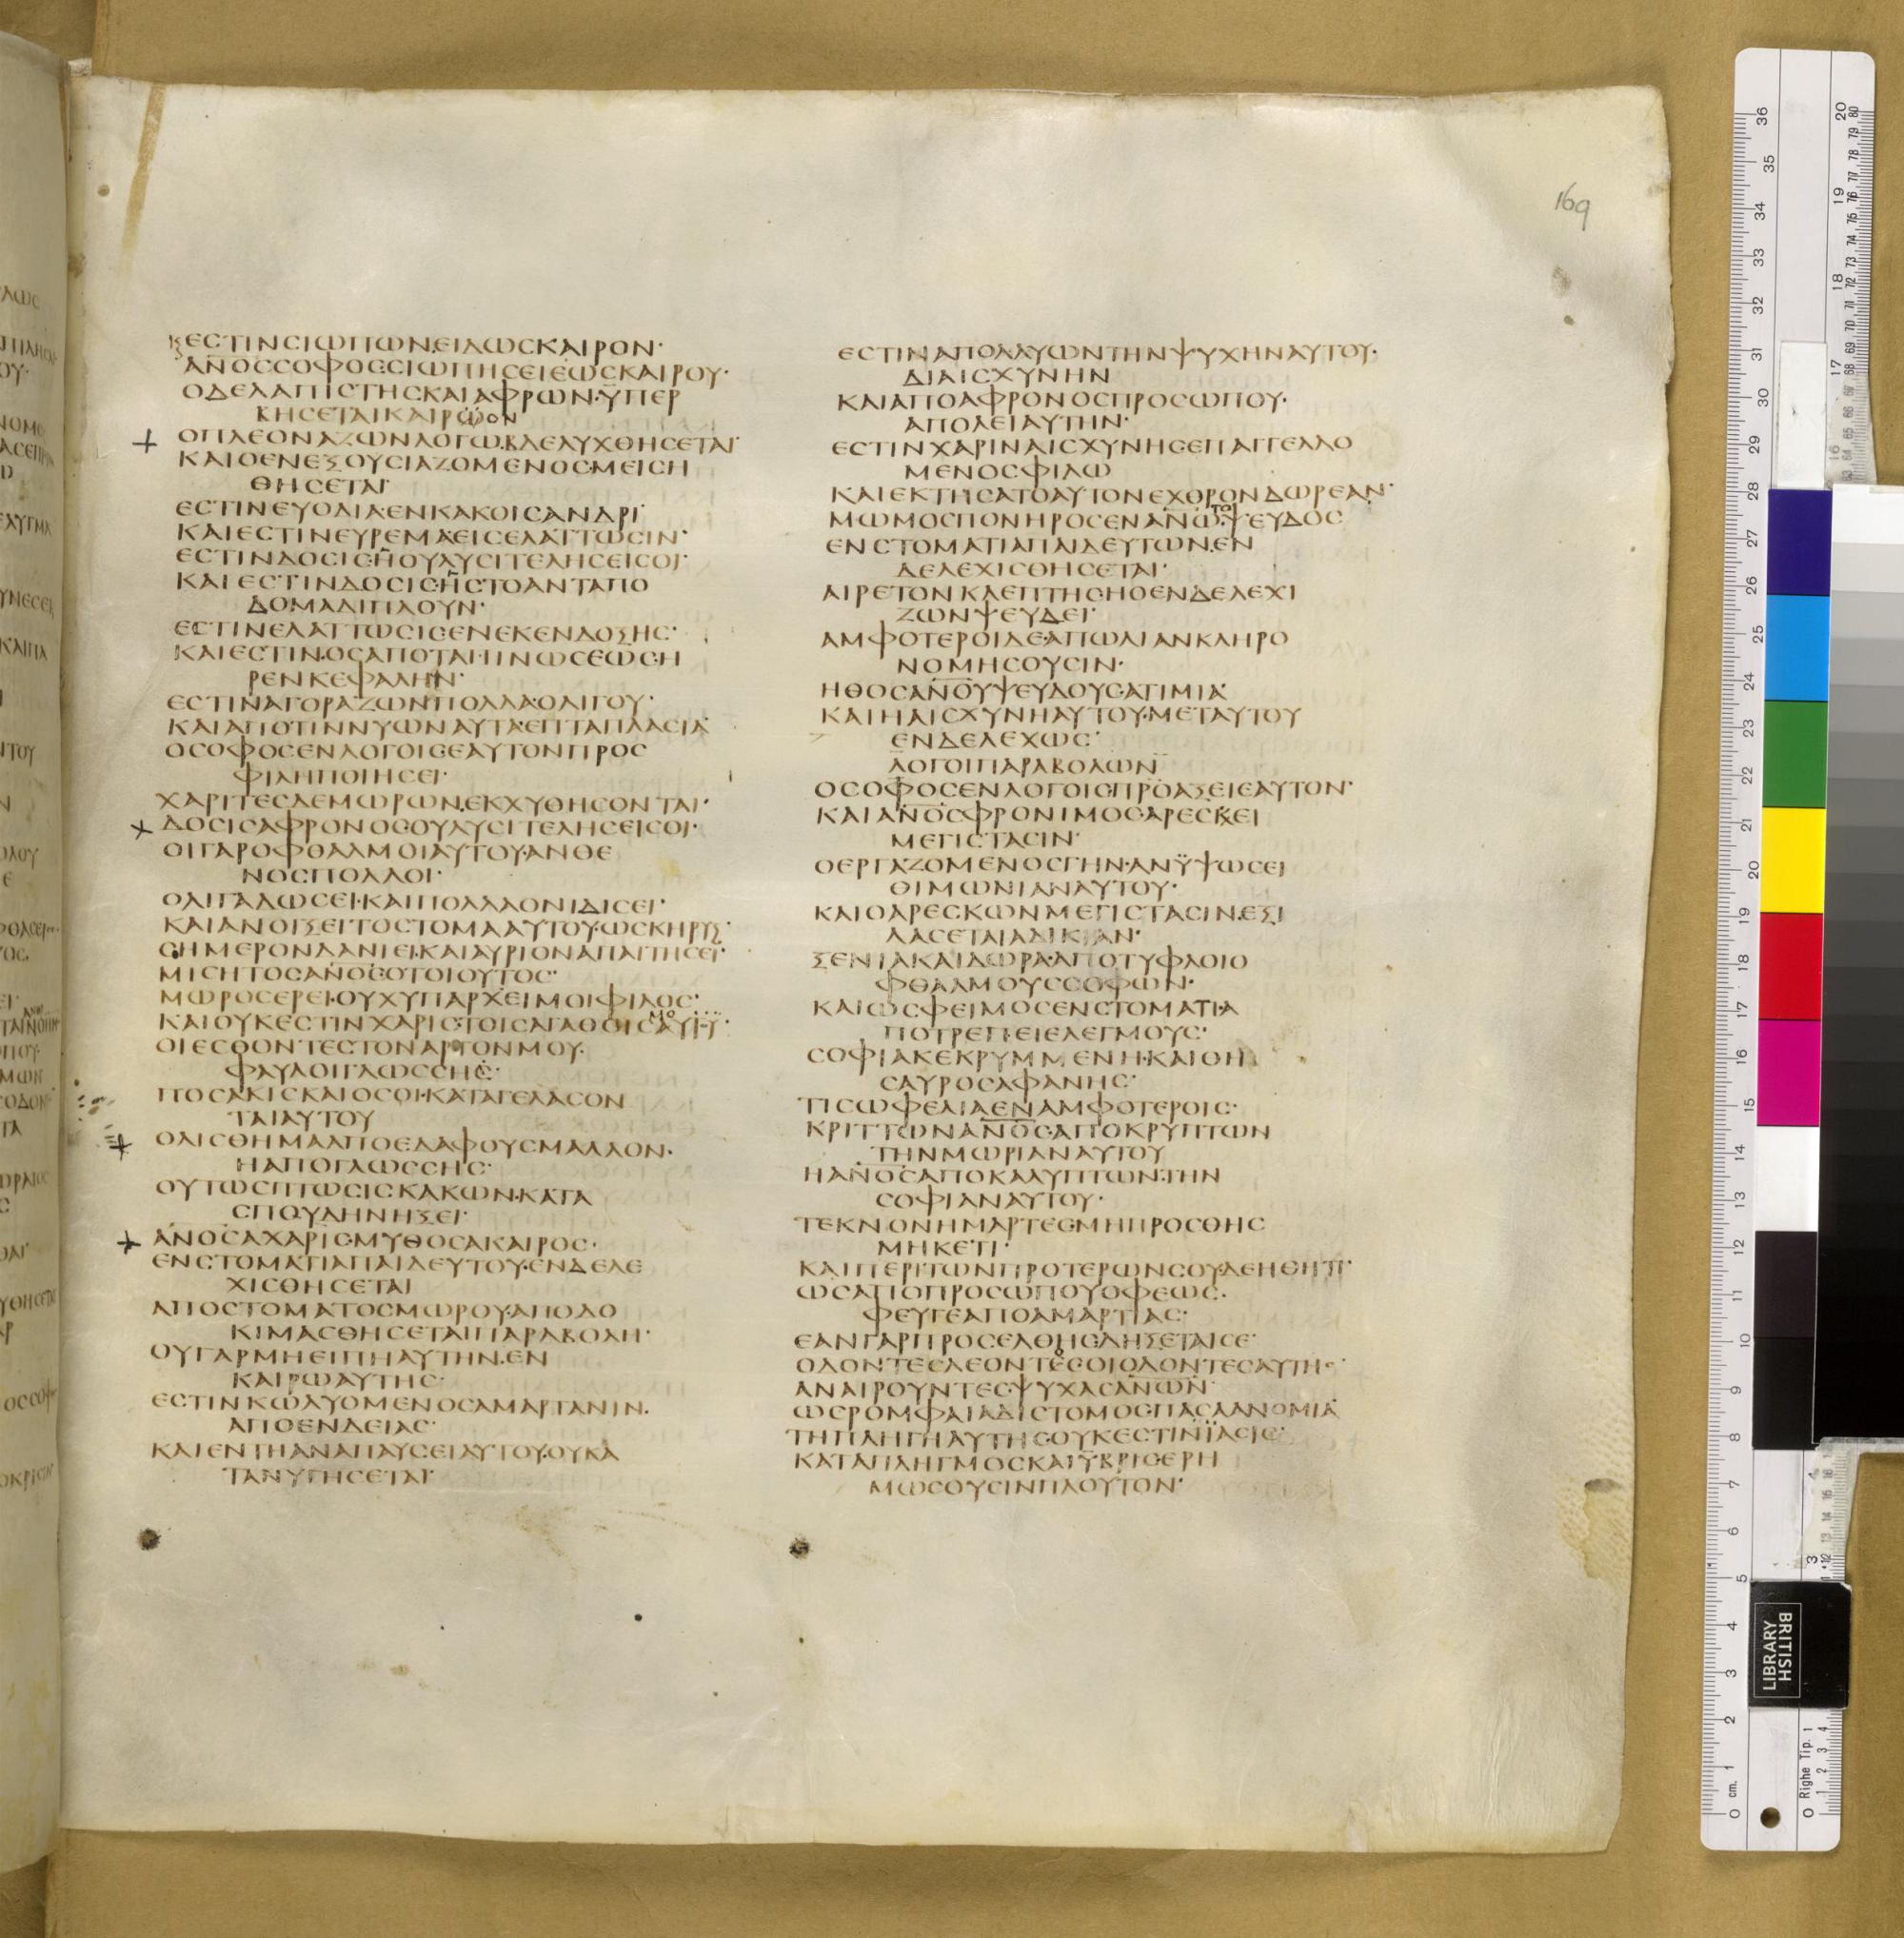 169
ΕϹΤΙΝϹΙΩΠΩΝ·ΕΙΔΩϹΚΑΙΡΟΝ·
ΑΝΟϹϹΟΦΟϹ·ϹΙΩΠΗϹΕΙΕΩϹΚΑΙΡΟΥ·
ΟΔΕΛΑΠΙϹΤΗϹΚΑΙΑΦΡΩΝ·ΫΠΕΡ
ΒΗϹΕΤΑΙΚΑΙΡΟΝ
ΟΠΛΕΟΝΑΖΩΝΛΟΓΩ·ΒΔΕΛΥΧΘΗϹΕΤΑΙ·
ΚΑΙΟΕΝΕΞΟΥϹΙΑΖΟΜΕΝΟϹ·ΜΕΙϹΗ
ΘΗϹΕΤΑΙ·
ΕϹΤΙΝΕΥΟΔΙΑΕΝΚΑΚΟΙϹΑΝΔΡΙ·
ΚΑΙΕϹΤΙΝΕΥΡΕΜΑ·ΕΙϹΕΛΑΤΤΩϹΙΝ·
ΕϹΤΙΝΔΟϹΙϹ·ΗΟΥΛΥϹΙΤΕΛΗϹΕΙϹΟΙ·
ΚΑΙΕϹΤΙΝΔΟϹΙϹ·ΗϹΤΟΑΝΤΑΠΟ
ΔΟΜΑΔΙΠΛΟΥΝ·
ΕϹΤΙΝΕΛΑΤΤΩϹΙϹ·ΕΝΕΚΕΝΔΟΞΗϹ·
ΚΑΙΕϹΤΙΝ·ΟϹΑΠΟΤΑΠΙΝΩϹΕΩϹ·Η
ΡΕΝΚΕΦΑΛΗΝ·
ΕϹΤΙΝΑΓΟΡΑΖΩΝΠΟΛΛΑ·ΟΛΙΓΟΥ·
ΚΑΙΑΠΟΤΙΝΝΥΩΝΑΥΤΑ·ΕΠΤΑΠΛΑϹΙΑ·
ΟϹΟΦΟϹΕΝΛΟΓΟΙϹ·ΕΑΥΤΟΝΠΡΟϹ
ΦΙΛΗΠΟΙΗϹΕΙ·
ΧΑΡΙΤΕϹΔΕΜΩΡΩΝ·ΕΚΧΥΘΗϹΟΝΤΑΙ·
ΔΟϹΙϹΑΦΡΟΝΟϹ·ΟΥΛΥϹΙΤΕΛΗϹΕΙϹΟΙ·
ΟΙΓΑΡΟΦΘΑΛΜΟΙΑΥΤΟΥ·ΑΝΘΕ
ΝΟϹΠΟΛΛΟΙ·
ΟΛΙΓΑΔΩϹΕΙ·ΚΑΙΠΟΛΛΑΟΝΙΔΙϹΕΙ·
ΚΑΙΑΝΟΙΞΕΙΤΟϹΤΟΜΑΑΥΤΟΥ·ΩϹΚΗΡΥΞ·
ϹΗΜΕΡΟΝΔΑΝΙΕΙ·ΚΑΙΑΥΡΙΟΝΑΠΑΙΤΗϹΕΙ·
ΜΙϹΗΤΟϹΑΝΟϹΟΤΟΙΟΥΤΟϹ·
ΜΩΡΟϹΕΡΕΙ·ΟΥΧΥΠΑΡΧΕΙΜΟΙΦΙΛΟϹ·
ΚΑΙΟΥΚΕϹΤΙΝΧΑΡΙϹ·ΤΟΙϹΑΓΑΘΟΙϹΜΟΥ·
ΟΙΕϹΘΟΝΤΕϹΤΟΝΑΡΤΟΝΜΟΥ·
ΦΑΥΛΟΙΓΛΩϹϹΗϹ·
ΠΟϹΑΚΙϹΚΑΙΟϹΟΙ·ΚΑΤΑΓΕΛΑϹΟΝ
ΤΑΙΑΥΤΟΥ
ΟΛΙϹΘΗΜΑΑΠΟΕΔΑΦΟΥϹΜΑΛΛΟΝ·
ΗΑΠΟΓΛΩϹϹΗϹ·
ΟΥΤΩϹΠΤΩϹΙϹΚΑΚΩΝ·ΚΑΤΑ
ϹΠΟΥΔΗΝΗΞΕΙ·
ΑΝΟϹΑΧΑΡΙϹ·ΜΥΘΟϹΑΚΑΙΡΟϹ·
ΕΝϹΤΟΜΑΤΙΑΠΑΙΔΕΥΤΟΥ·ΕΝΔΕΛΕ
ΧΙϹΘΗϹΕΤΑΙ
ΑΠΟϹΤΟΜΑΤΟϹΜΩΡΟΥ·ΑΠΟΔΟ
ΚΙΜΑϹΘΗϹΕΤΑΙΠΑΡΑΒΟΛΗ·
ΟΥΓΑΡΜΗΕΙΠΗΑΥΤΗΝ·ΕΝ
ΚΑΙΡΩΑΥΤΗϹ·
ΕϹΤΙΝΚΩΛΥΟΜΕΝΟϹΑΜΑΡΤΑΝΙΝ·
ΑΠΟΕΝΔΕΙΑϹ·
ΚΑΙΕΝΤΗΑΝΑΠΑΥϹΕΙΑΥΤΟΥ·ΟΥΚΑ
ΤΑΝΥΓΗϹΕΤΑΙ·
ΕϹΤΙΝΑΠΟΛΛΥΩΝΤΗΝΨΥΧΗΝΑΥΤΟΥ·
ΔΙΑΙϹΧΥΝΗΝ
ΚΑΙΑΠΟΑΦΡΟΝΟϹΠΡΟϹΩΠΟΥ·
ΑΠΟΛΕΙΑΥΤΗΝ·
ΕϹΤΙΝΧΑΡΙΝΑΙϹΧΥΝΗϹ·ΕΠΑΓΓΕΛΛΟ
ΜΕΝΟϹ·ΦΙΛΩ
ΚΑΙΕΚΤΗϹΑΤΟΑΥΤΟΝΕΧΘΡΟΝΔΩΡΕΑΝ·
ΜΩΜΟϹΠΟΝΗΡΟϹΕΝΑΝΩ·ΤΟΨΕΥΔΟϹ
ΕΝϹΤΟΜΑΤΙΑΠΑΙΔΕΥΤΩΝ·ΕΝ
ΔΕΛΕΧΙϹΘΗϹΕΤΑΙ·
ΑΙΡΕΤΟΝΚΛΕΠΤΗϹ·ΗΟΕΝΔΕΛΕΧΙ
ΖΩΝΨΕΥΔΕΙ·
ΑΜΦΟΤΕΡΟΙΔΕ·ΑΠΩΛΙΑΝΚΛΗΡΟ
ΝΟΜΗϹΟΥϹΙΝ·
ΗΘΟϹΑΝΟΥΨΕΥΔΟΥϹΑΤΙΜΙΑ·
ΚΑΙΗΑΙϹΧΥΝΗΑΥΤΟΥ·ΜΕΤΑΥΤΟΥ
ΕΝΔΕΛΕΧΩϹ·
ΛΟΓΟΙΠΑΡΑΒΟΛΩΝ
ΟϹΟΦΟϹΕΝΛΟΓΟΙϹ·ΠΡΟΑΞΕΙΕΑΥΤΟΝ·
ΚΑΙΑΝΟϹΦΡΟΝΙΜΟϹ·ΑΡΕϹΚΕΙ
ΜΕΓΙϹΤΑϹΙΝ·
ΟΕΡΓΑΖΟΜΕΝΟϹΓΗΝ·ΑΝΫΨΩϹΕΙ
ΘΙΜΩΝΙΑΝΑΥΤΟΥ·
ΚΑΙΟΑΡΕϹΚΩΝΜΕΓΙϹΤΑϹΙΝ·ΕΞΙ
ΛΑϹΕΤΑΙΑΔΙΚΙΑΝ·
ΞΕΝΙΑΚΑΙΔΩΡΑ·ΑΠΟΤΥΦΛΟΙΟ
ΦΘΑΛΜΟΥϹϹΟΦΩΝ·
ΚΑΙΩϹΦΕΙΜΟϹΕΝϹΤΟΜΑΤΙ·Α
ΠΟΤΡΕΠΕΙΕΛΕΓΜΟΥϹ·
ϹΟΦΙΑΚΕΚΡΥΜΜΕΝΗ·ΚΑΙΘΗ
ϹΑΥΡΟϹΑΦΑΝΗϹ·
ΤΙϹΩΦΕΛΙΑΕΝΑΜΦΟΤΕΡΟΙϹ·
ΚΡΙΤΤΩΝΑΝΟϹ·ΑΠΟΚΡΥΠΤΩΝ
ΤΗΝΜΩΡΙΑΝΑΥΤΟΥ
ΗΑΝΟϹΑΠΟΚΑΛΥΠΤΩΝ·ΤΗΝ
ϹΟΦΙΑΝΑΥΤΟΥ·
ΤΕΚΝΟΝΗΜΑΡΤΕϹ·ΜΗΠΡΟϹΘΗϹ
ΜΗΚΕΤΙ·
ΚΑΙΠΕΡΙΤΩΝΠΡΟΤΕΡΩΝϹΟΥΔΕΗΘΗΤΙ·
ΩϹΑΠΟΠΡΟϹΩΠΟΥΟΦΕΩϹ·
ΦΕΥΓΕΑΠΟΑΜΑΡΤΙΑϹ·
ΕΑΝΓΑΡΠΡΟϹΕΛΘΗϹ·ΔΗΞΕΤΑΙϹΕ·
ΟΔΟΝΤΕϹΛΕΟΝΤΟϹ·ΟΙΟΔΟΝΤΕϹΑΥΤΗϹ·
ΑΝΑΙΡΟΥΝΤΕϹ·ΨΥΧΑϹΑΝΩΝ·
ΩϹΡΟΜΦΑΙΑΔΙϹΤΟΜΟϹ·ΠΑϹΑΑΝΟΜΙΑ·
ΤΗΠΛΗΓΗΑΥΤΗϹ·ΟΥΚΕϹΤΙΝΪΑϹΙϹ·
ΚΑΤΑΠΛΗΓΜΟϹΚΑΙΫΒΡΙϹ·ΕΡΗ
ΜΩϹΟΥϹΙΝΠΛΟΥΤΟΝ·
BRITISH
LIBRARY